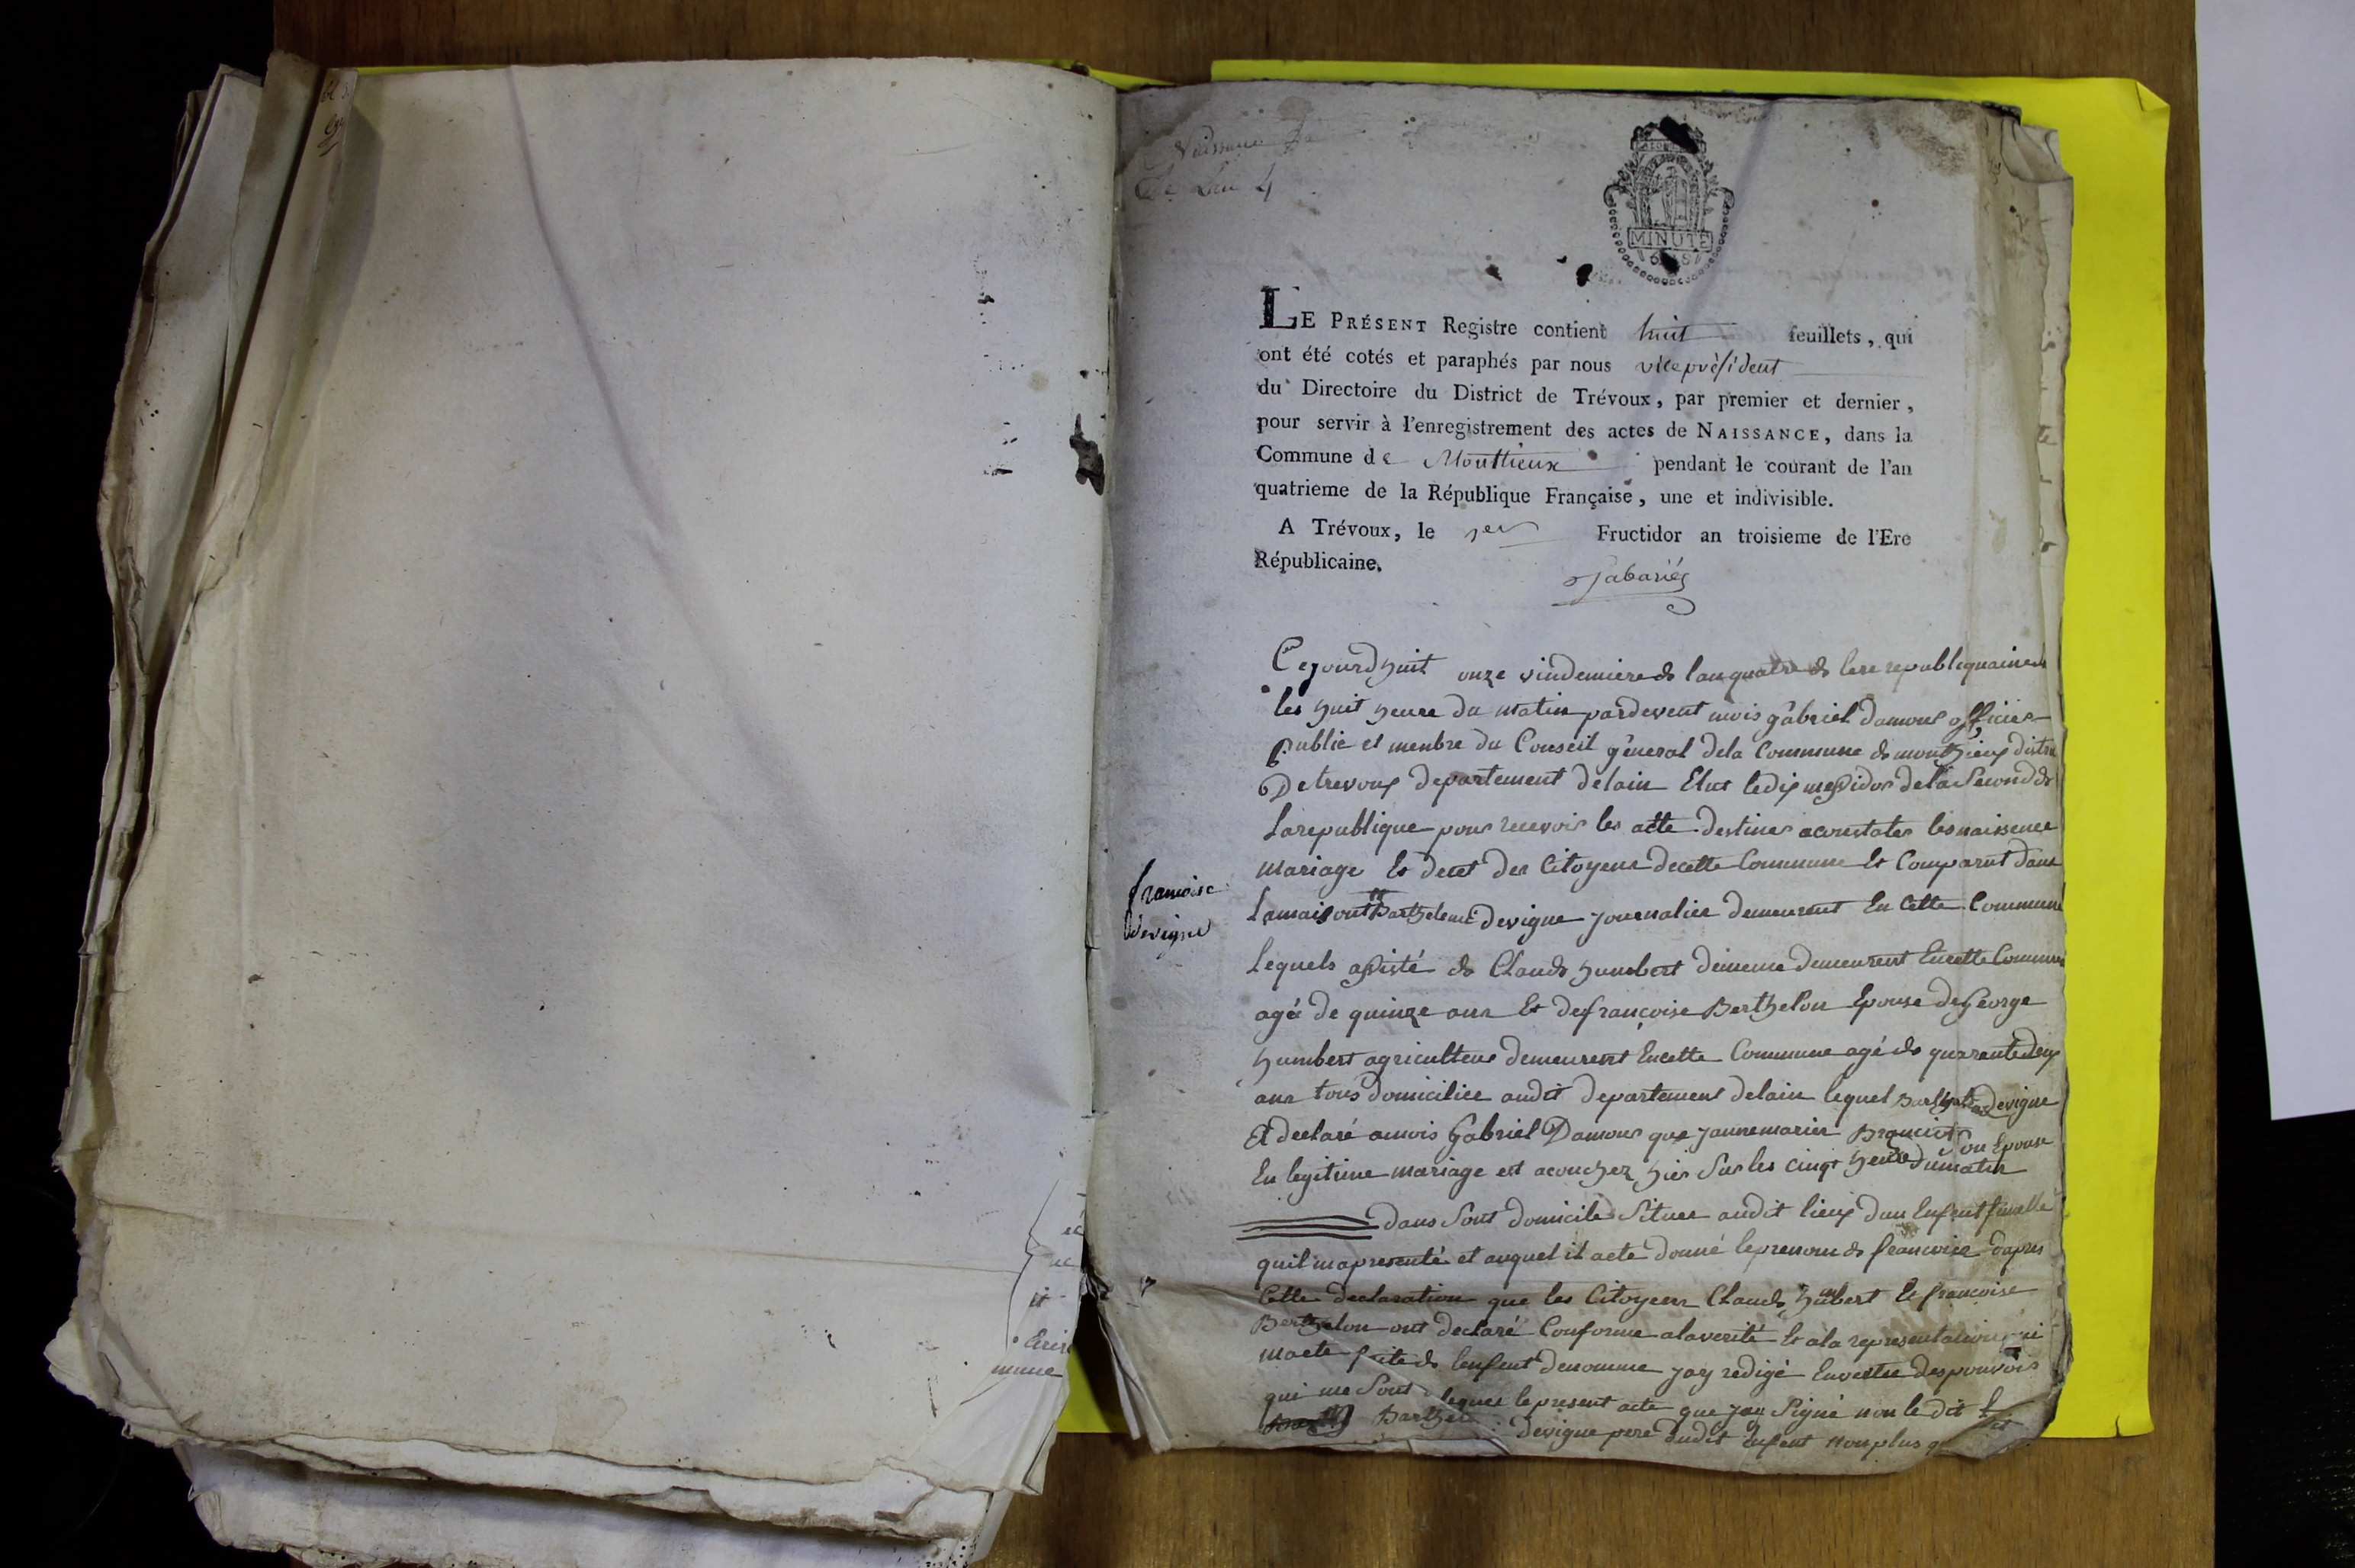 Naissance
MINUTE
LE PRÉSENT Registre contient huit feuillets, qui
ont été cotés et paraphés par nous viceprésident
du Directoire du District de Trévoux, par premier et dernier,
pour servir à l'enregistrement des actes de NAISSANCE, dans la
Commune de Monthieux pendant le courant de l'an
quatrieme de la République Française, une et indivisible.
A Trévoux, le 1er Fructidor an troisieme de l'Ere
Républicaine.
Cejourdhuit onze vindemiere de lan quatre de lere republiquaine
les huit heure du matin pardevent mois gabriel damour officier
public et menbre du Conseil géneral dela Commune de monthieux
Detrevoux departement delain Elut ledix messidor dela Second de
Larepublique pour recevoir les acte destiner aconstater les naissence
mariage Et decet des Citoyens decette Commune Et Comparut dans
francoise
devigne
Lamaisont Barthelemi devigne journalier demeurent En Cette Commune
Lequels assisté de Claude humbert demeurent Encette Commune
agé de quinze ans Et defrançoise Berthelon Epouse deGeorge
humbert agriculteur demeurent Encette Commune agé de quarantedeux
ans tous domicilier audit departement delain lequel devigne
A declaré amois Gabriel Damour que jannemarier Son Epouse
En legitime mariage est acouchez hier Sur les cinqt heure dumatin
dans Sont domicile Situer audit lieux dun Enfent femelle
quil mapresenté et auquel il aete donné leprenom de francoise dapres
Cette declaration que les Citoyens Claude humbert Et francoise
Berthelon ont declaré Conforme alaverité Et ala representation qui
maete faite de lenfent denomme jay redigé Envertu despouvoir
qui me Sont le present acte que jay Signé non le dit
devigne pere dudit Enfent non plus
mune